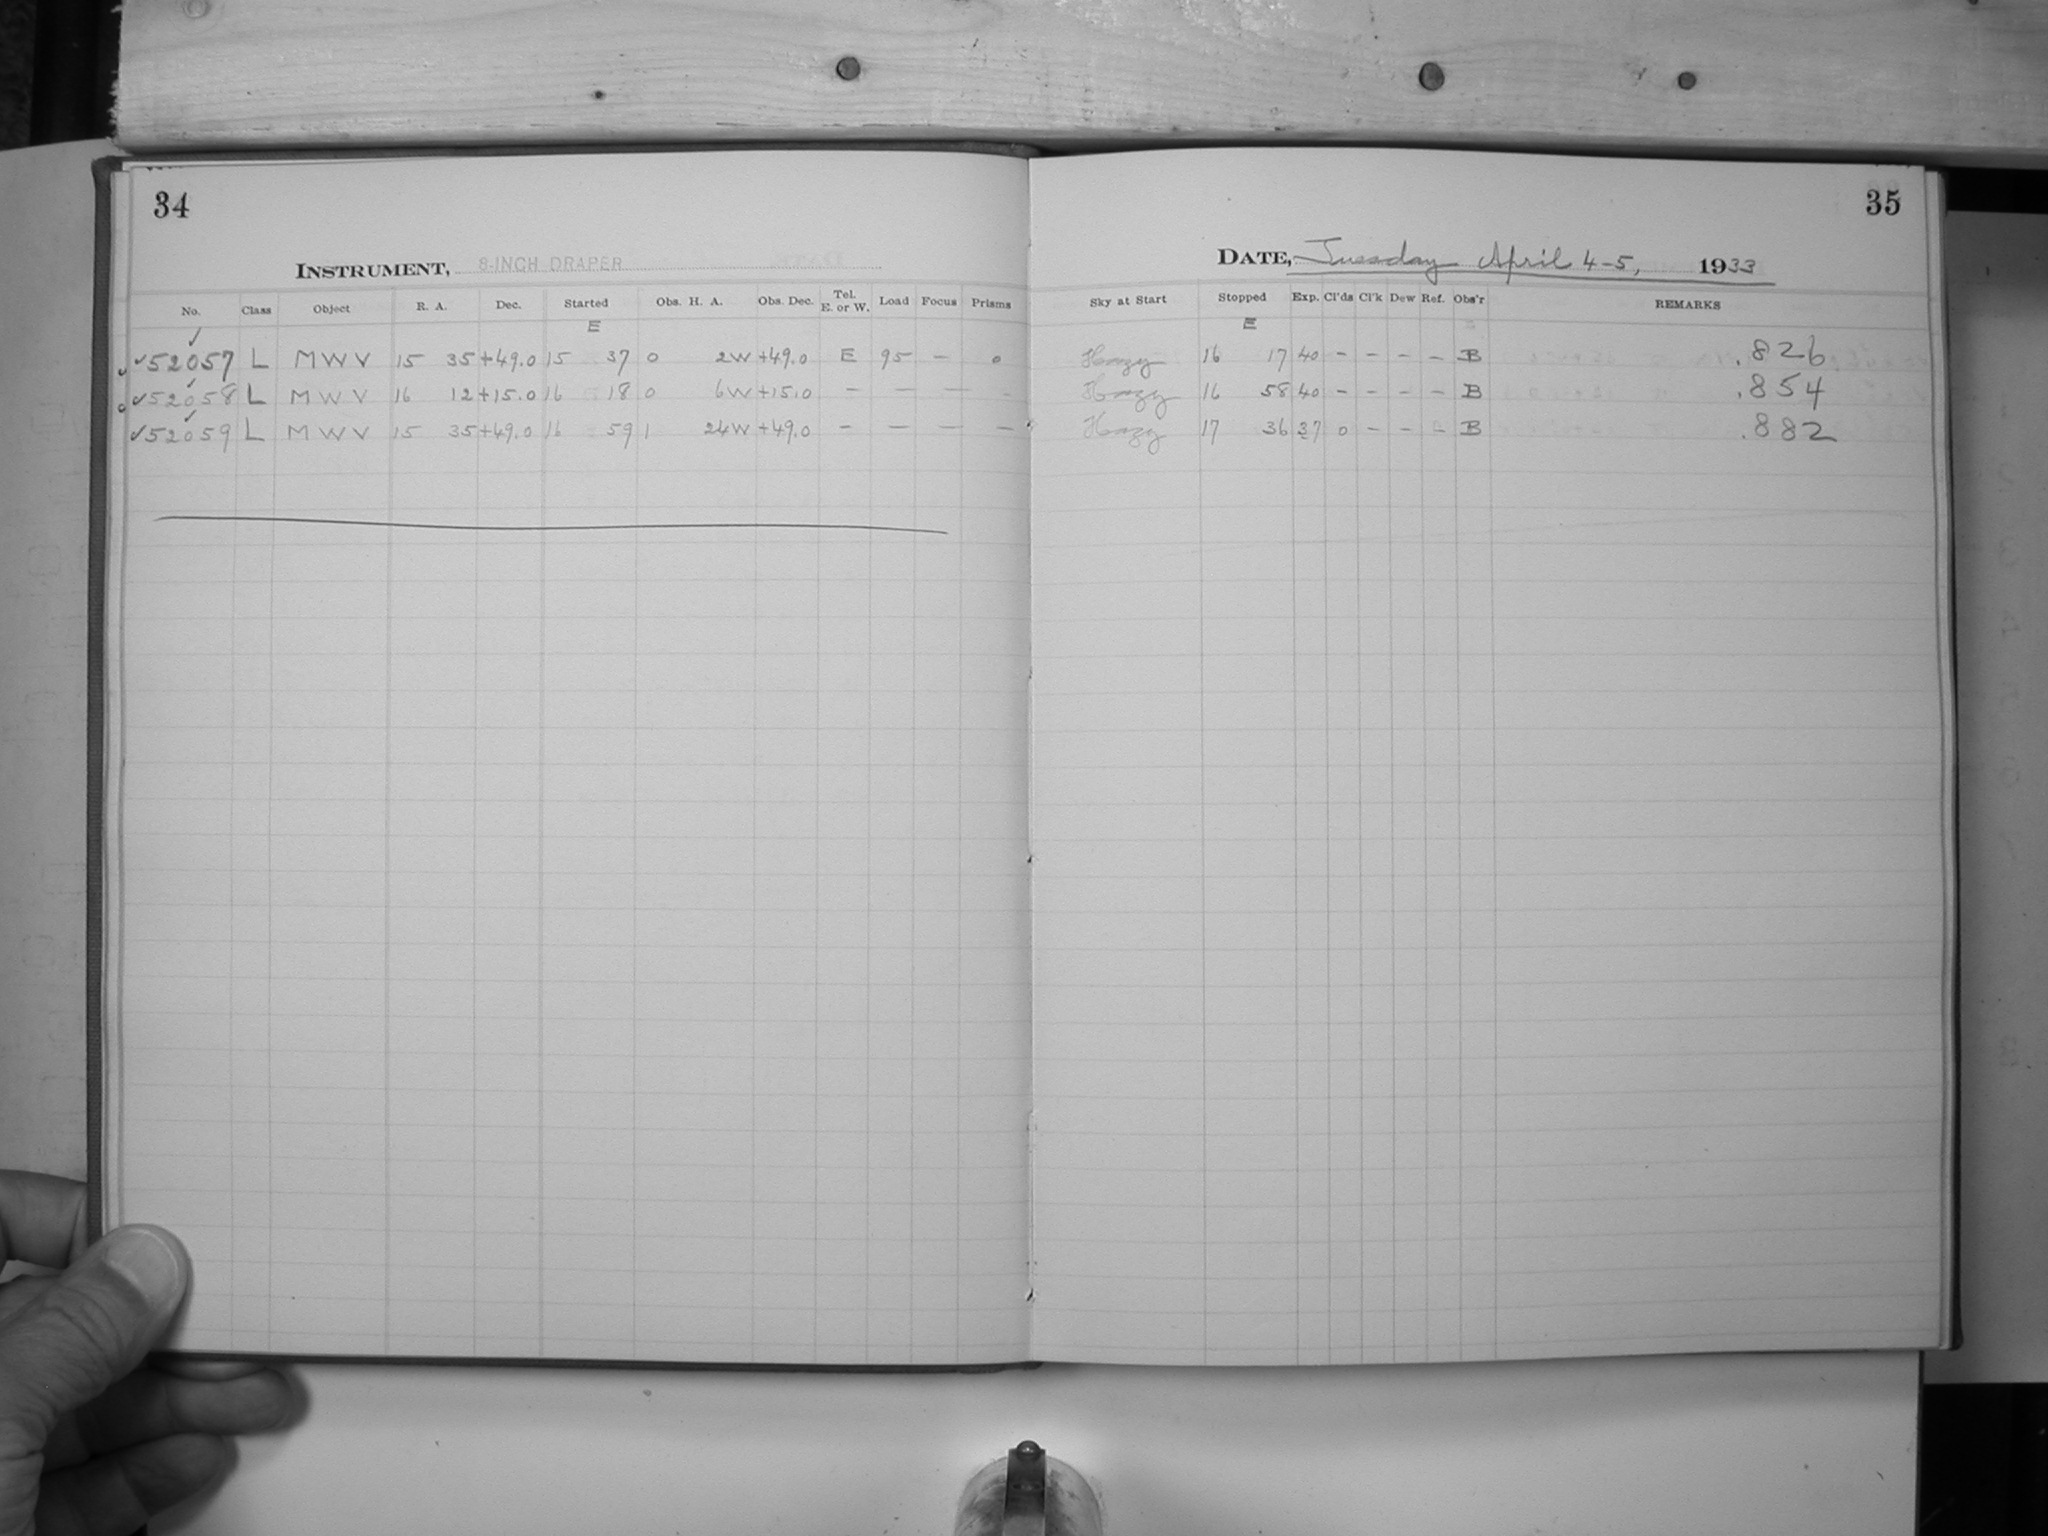 34
INSTRUMENT, 8-INCH DRAPER
No. Class Object R. A. Dec. Started Obs. H. A. Obs. Dec. Tel. E. or W. Load Focus Prisms
E
✓
✓52057 L MWV 15 35 +49.0 15 37 0 2W +49.0 E 95 – 0
✓52058 L MWV 16 12 +15.0 16 18 0 6W +15.0 – – — -
✓52059 L MWV 15 35 +49.0 16 59 1 24W +49.0 – — — —
35
DATE, Tuesday April 4-5, 1933
Sky at Start Stopped Exp. Cl'ds Cl'k Dew Ref. Obs'r REMARKS
E
Hazy 16 17 40 – – – – B .826
Hazy 16 58 40 – – – – B .854
Hazy 17 36 37 0 – – – B .882